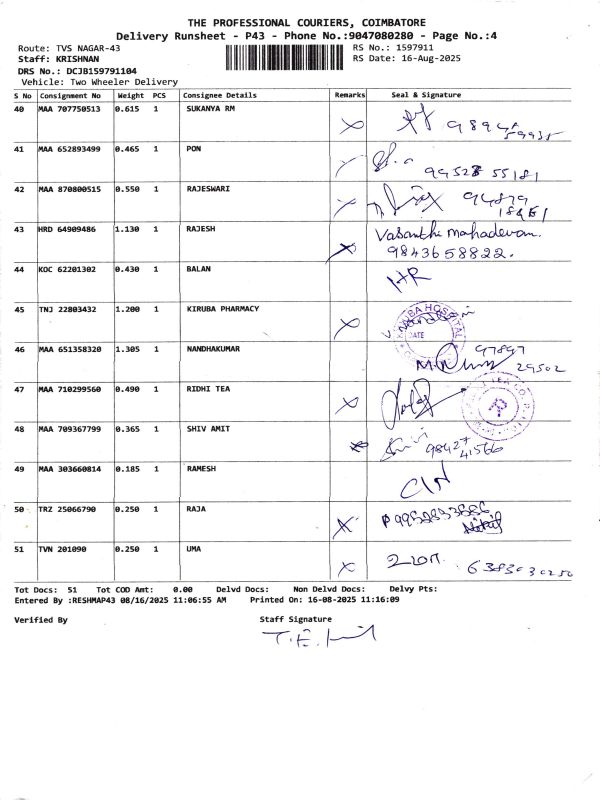 THE PROFESSIONAL COURIERS, COIMBATORE
Delivery Runsheet - P43 - Phone No.:9047080280 - Page No.:4
Route: TVS NAGAR-43 RS No.: 1597911
Staff: KRISHNAN RS Date: 16-Aug-2025
DRS No.: DCJB159791104
Vehicle: Two Wheeler Delivery
S No Consignment No Weight PCS Consignee Details Remarks Seal & Signature
40 MAA 707750513 0.615 1 SUKANYA RM
41 MAA 652893499 0.465 1 PON
99528 55181
42 MAA 870800515 0.550 1 RAJESWARI
43 HRD 64909486 1.130 1 RAJESH Vasanthi mahadevan.
9843658822.
44 KOC 62201302 0.430 1 BALAN
45 TNJ 22803432 1.200 1 KIRUBA PHARMACY
HOSPITAL
DATE
46 MAA 651358320 1.305 1 NANDHAKUMAR 97897
29502
47 MAA 710299560 0.490 1 RIDHI TEA
48 MAA 709367799 0.365 1 SHIV AMIT 98427
41566
49 MAA 303660814 0.185 1 RAMESH
50 TRZ 25066790 0.250 1 RAJA
51 TVN 201090 0.250 1 UMA
Tot Docs: 51 Tot COD Amt: 0.00 Delvd Docs: Non Delvd Docs: Delvy Pts:
Entered By :RESHMAP43 08/16/2025 11:06:55 AM Printed On: 16-08-2025 11:16:09
Verified By Staff Signature